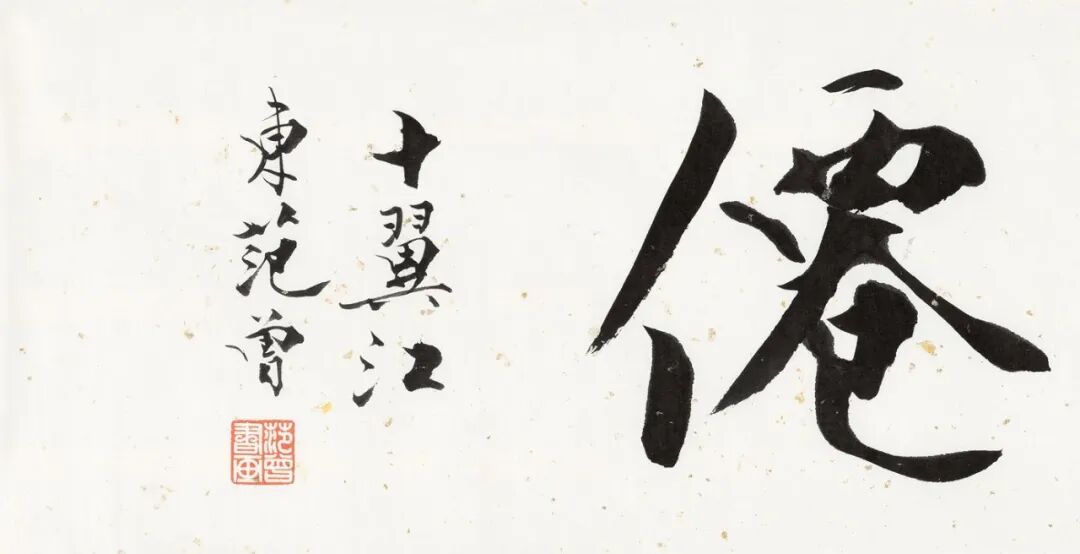 僊
十翼江
東范曾
范曾
書画